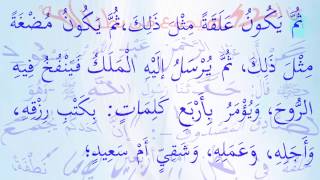 ثُمَّ يَكُونُ عَلَقَةً مِثْلَ ذَلِكَ، ثُمَّ يَكُونُ مُضْغَةً
مِثْلَ ذَلِكَ، ثُمَّ يُرْسَلُ إِلَيْهِ الْمَلَكُ فَيَنْفُخُ فِيهِ
الرُّوحَ، وَيُؤْمَرُ بِأَرْبَعِ كَلِمَاتٍ: بِكَتْبِ رِزْقِهِ،
وَأَجَلِهِ، وَعَمَلِهِ، وَشَقِيٌّ أَمْ سَعِيدٌ؛